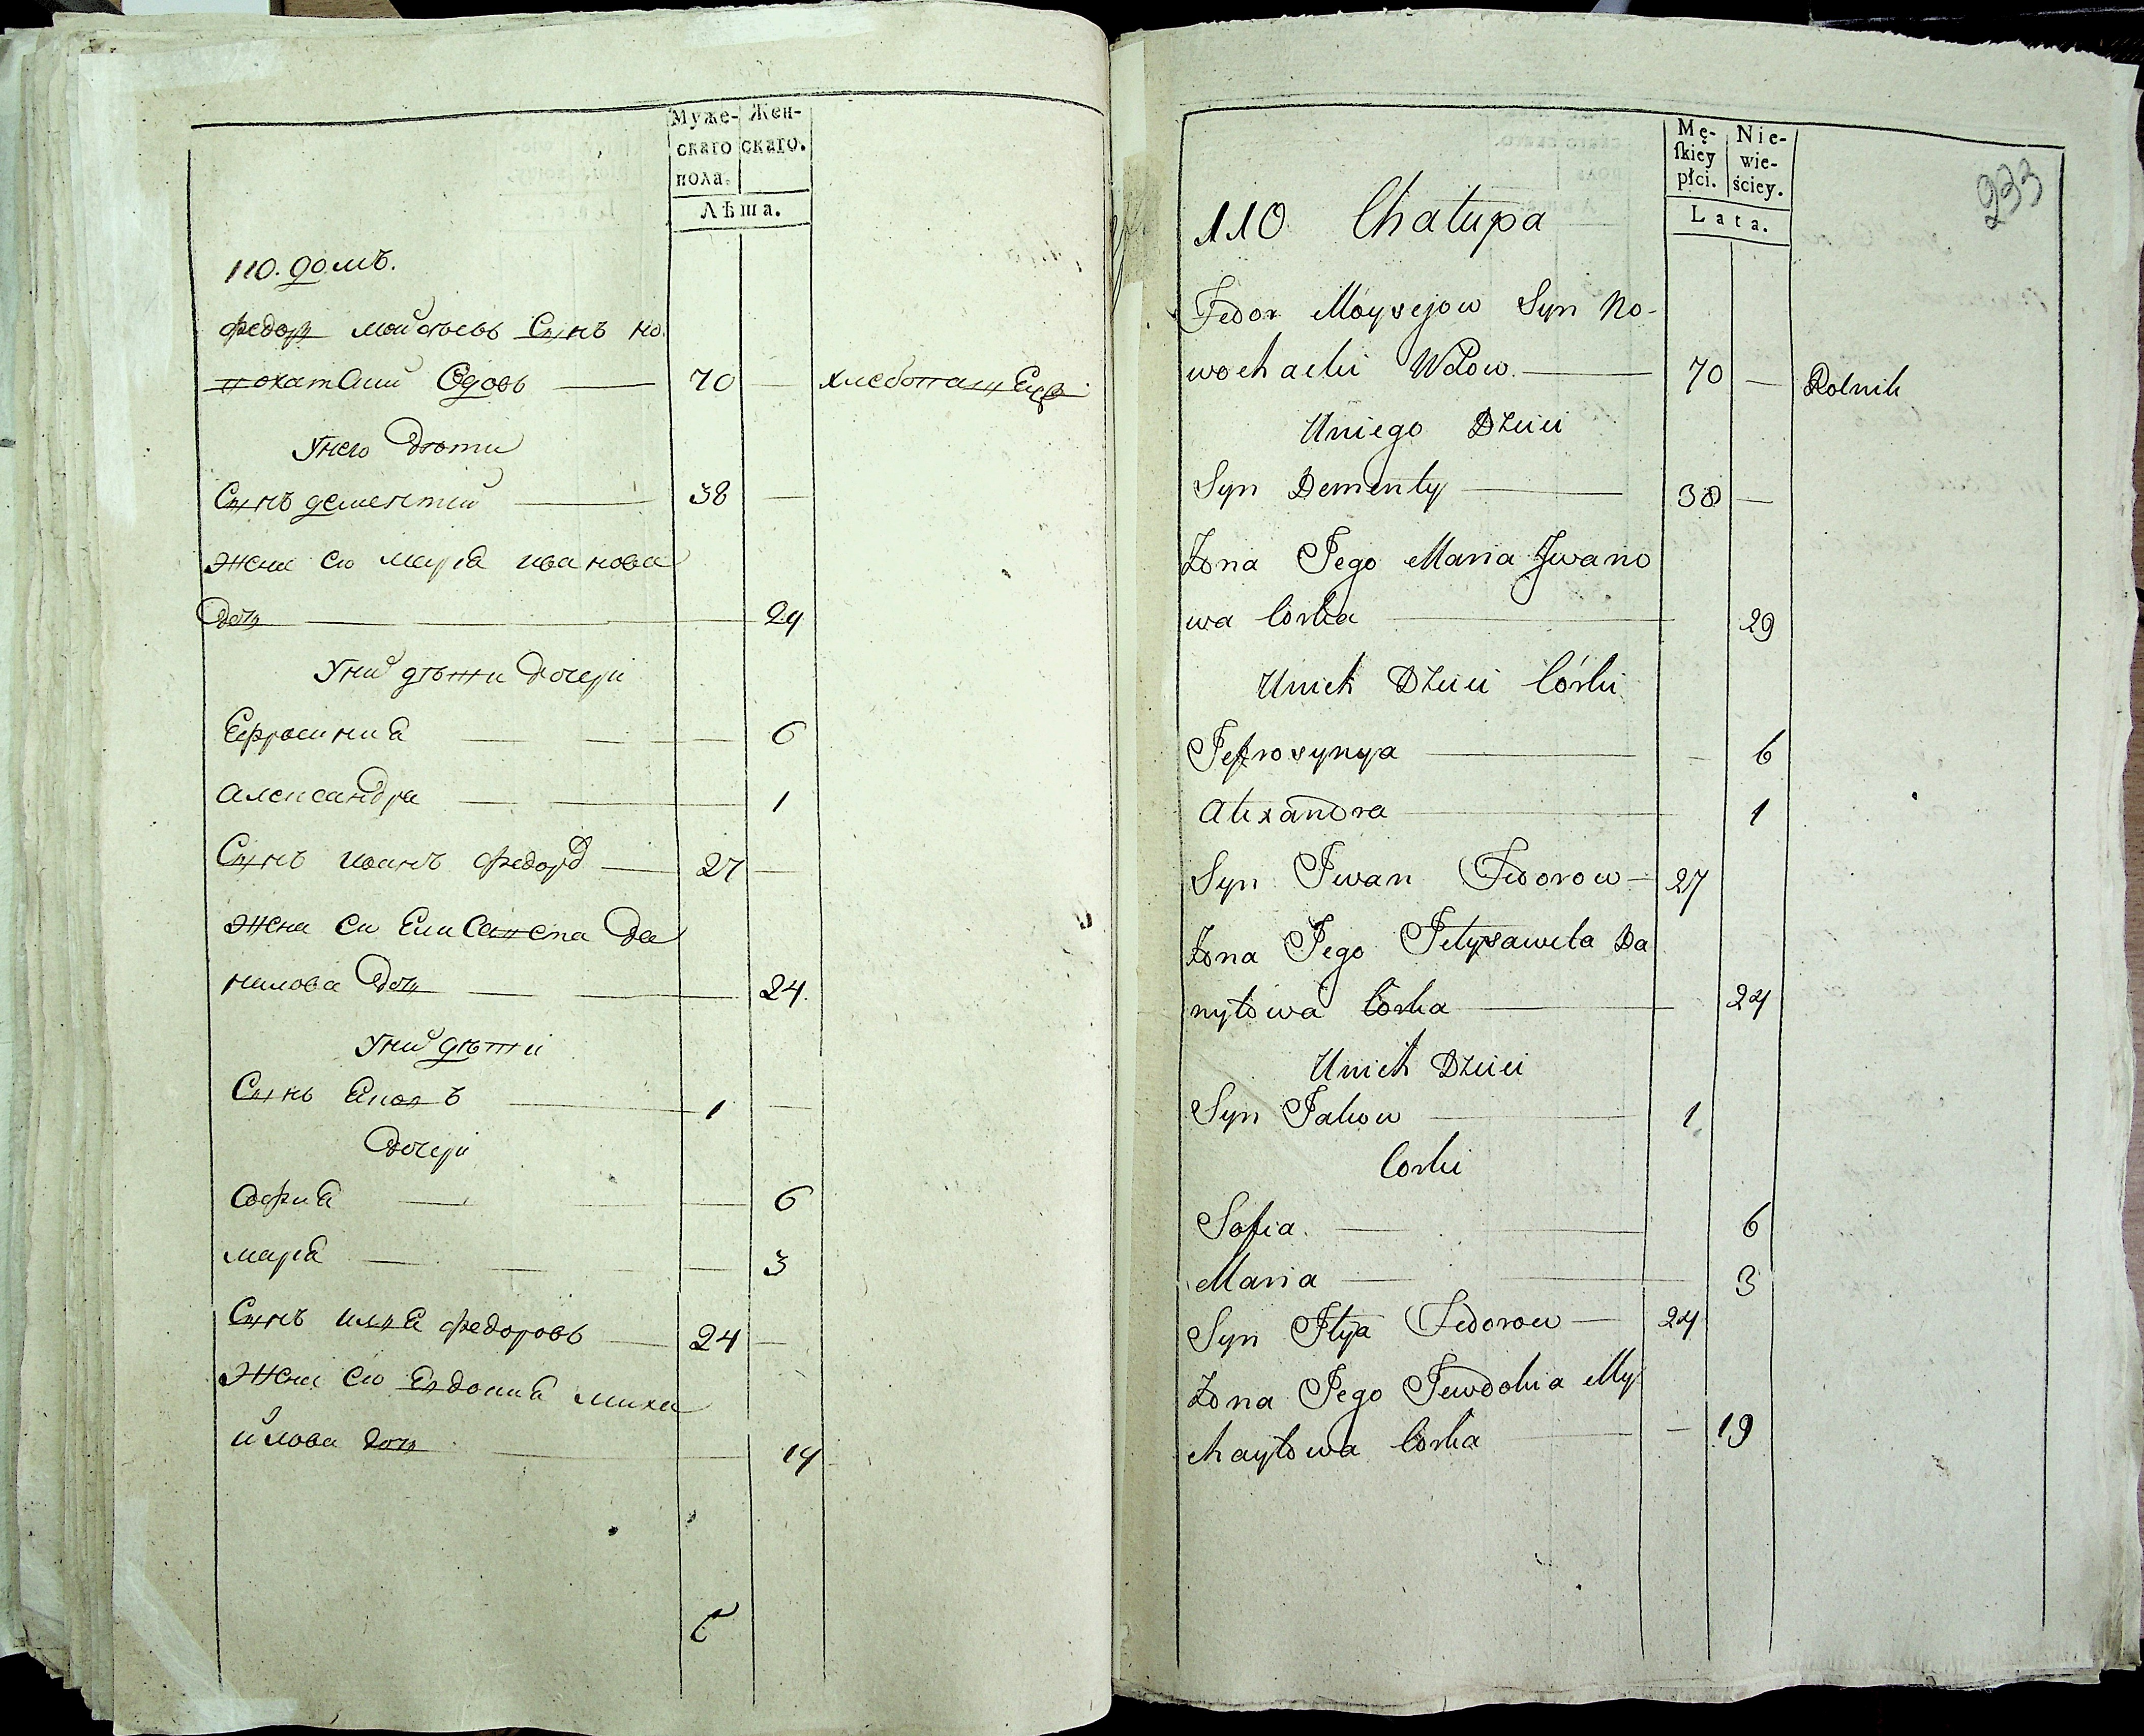 Муже-
скаго
пола.
Жен-
скаго.
Лѣта.
110. домъ.
Федоръ Мойсѣевъ Сынъ Но
вохатскій Вдовъ — 70 — хлебопашецъ
Унего Дѣти
Сынъ дементій — 38 —
Жена Его Марія иванова
Дочь — 29
Униⷯ дѣти Дочери
Ефросинія — 6
Александра — 1
Сынъ иванъ Федороⷡ — 27 —
Жена Его Елисавета Да
нилова Дочь — 24.
Униⷯ дѣти
Сынъ Яковъ — 1 —
Дочери
Софія — 6
Марія — 3
Сынъ илья Федоровъ — 24 —
Жена Его Евдокия Миха
йлова Дочь — 19
Mę-
ſkiey
płci.
Nie-
wie-
ściey.
Lata.
233
110 Chałupa
Fedor Moysejow Syn No-
wochacki Wdow. — 70 — Rolnik
Uniego Dzieci
Syn Dementy — 38 —
Żona Jego Maria Jwano
wa Corka — 29
Unich Dzieci Córki
Jefrosynya — 6
Alexandra — 1
Syn Jwan Fedorow — 27
Żona Jego Jełysaweta Da
nyłowa Corka — 24
Unich Dzieci
Syn Jakow — 1
Corki
Sofia. — 6
Maria — 3
Syn Jłya Fedorow — 24
Żona Jego Jewdokia My
chayłowa Corka — 19